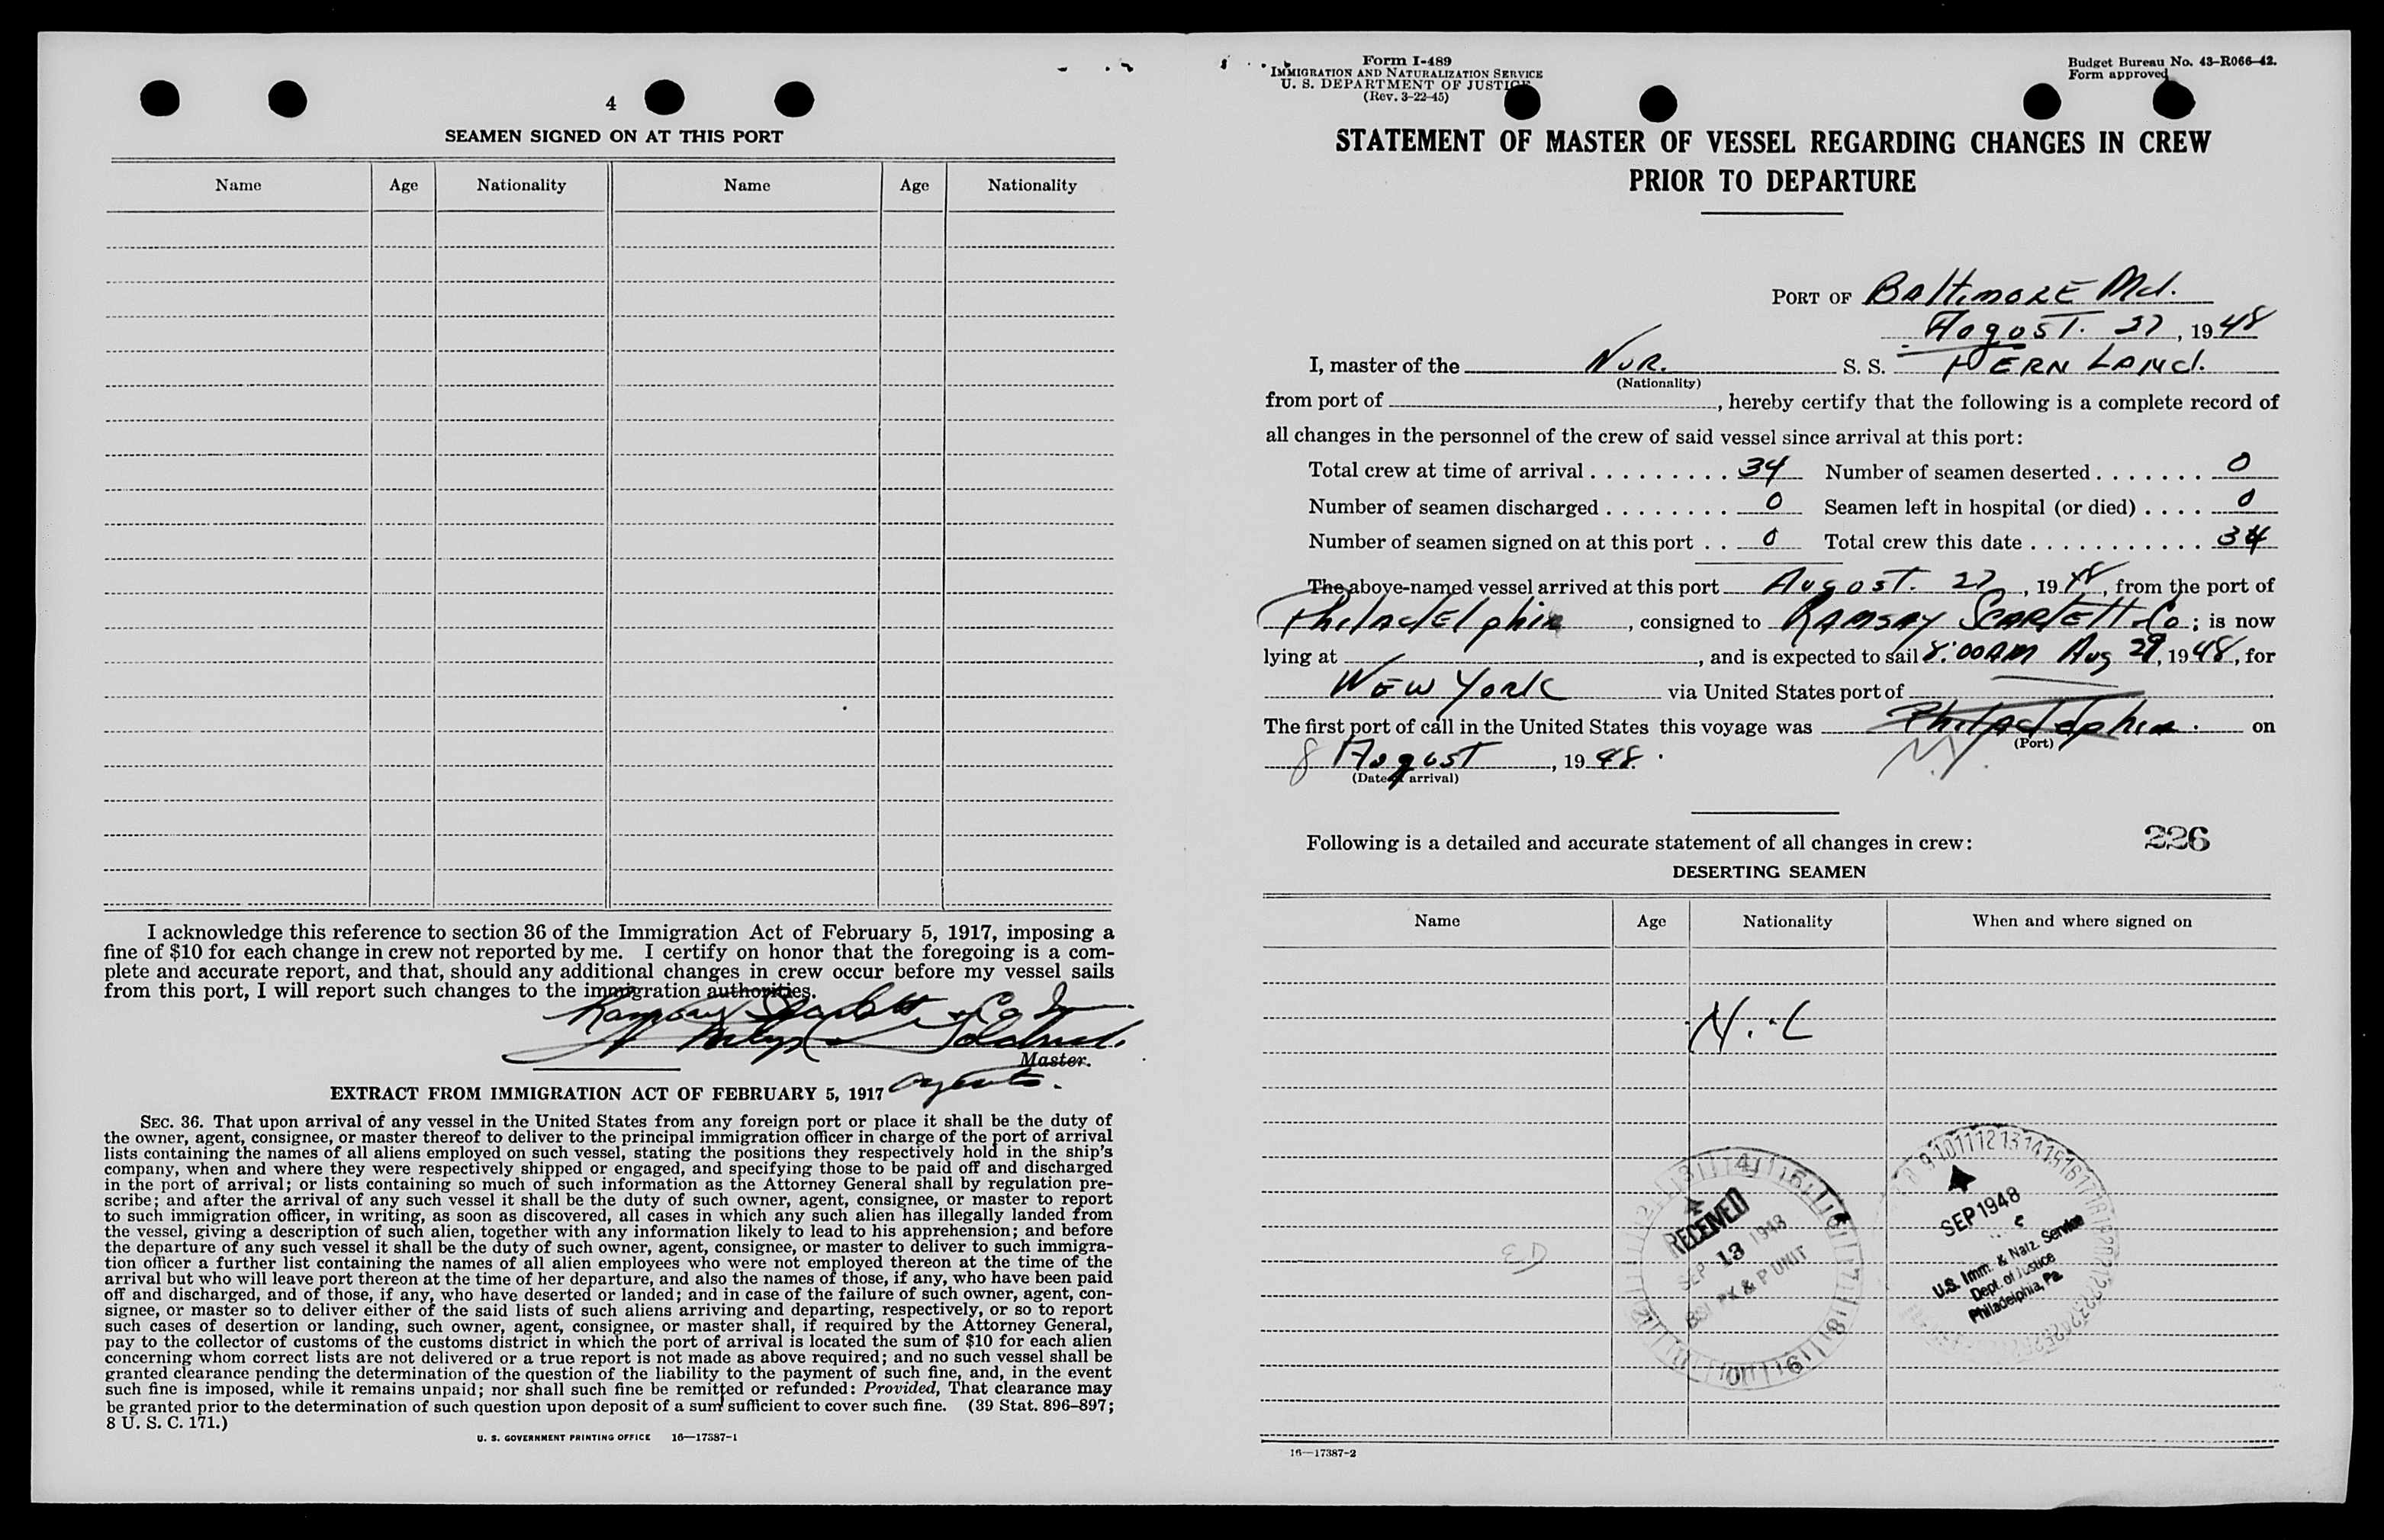 4
SEAMEN SIGNED ON AT THIS PORT
Name Age Nationality Name Age Nationality
I acknowledge this reference to section 36 of the Immigration Act of February 5, 1917, imposing a
fine of $10 for each change in crew not reported by me. I certify on honor that the foregoing is a com-
plete and accurate report, and that, should any additional changes in crew occur before my vessel sails
from this port, I will report such changes to the immigration authorities.
Ramsay Scarlett & Co
Master.
agents.
EXTRACT FROM IMMIGRATION ACT OF FEBRUARY 5, 1917
SEC. 36. That upon arrival of any vessel in the United States from any foreign port or place it shall be the duty of
the owner, agent, consignee, or master thereof to deliver to the principal immigration officer in charge of the port of arrival
lists containing the names of all aliens employed on such vessel, stating the positions they respectively hold in the ship's
company, when and where they were respectively shipped or engaged, and specifying those to be paid off and discharged
in the port of arrival; or lists containing so much of such information as the Attorney General shall by regulation pre-
scribe; and after the arrival of any such vessel it shall be the duty of such owner, agent, consignee, or master to report
to such immigration officer, in writing, as soon as discovered, all cases in which any such alien has illegally landed from
the vessel, giving a description of such alien, together with any information likely to lead to his apprehension; and before
the departure of any such vessel it shall be the duty of such owner, agent, consignee, or master to deliver to such immigra-
tion officer a further list containing the names of all alien employees who were not employed thereon at the time of the
arrival but who will leave port thereon at the time of her departure, and also the names of those, if any, who have been paid
off and discharged, and of those, if any, who have deserted or landed; and in case of the failure of such owner, agent, con-
signee, or master so to deliver either of the said lists of such aliens arriving and departing, respectively, or so to report
such cases of desertion or landing, such owner, agent, consignee, or master shall, if required by the Attorney General,
pay to the collector of customs of the customs district in which the port of arrival is located the sum of $10 for each alien
concerning whom correct lists are not delivered or a true report is not made as above required; and no such vessel shall be
granted clearance pending the determination of the question of the liability to the payment of such fine, and, in the event
such fine is imposed, while it remains unpaid; nor shall such fine be remitted or refunded: Provided, That clearance may
be granted prior to the determination of such question upon deposit of a sum sufficient to cover such fine. (39 Stat. 896–897;
8 U. S. C. 171.)
U. S. GOVERNMENT PRINTING OFFICE 16—17387-1
Form I-489
IMMIGRATION AND NATURALIZATION SERVICE
U. S. DEPARTMENT OF JUSTICE
(Rev. 3-22-45)
Budget Bureau No. 43-R066-42.
Form approved
STATEMENT OF MASTER OF VESSEL REGARDING CHANGES IN CREW
PRIOR TO DEPARTURE
PORT OF BALTIMORE Md.
AUGUST. 27, 1948
I, master of the NOR. S. S. FERNLAND.
(Nationality)
from port of , hereby certify that the following is a complete record of
all changes in the personnel of the crew of said vessel since arrival at this port:
Total crew at time of arrival 34 Number of seamen deserted 0
Number of seamen discharged 0 Seamen left in hospital (or died) 0
Number of seamen signed on at this port 0 Total crew this date 34
The above-named vessel arrived at this port AUGUST. 27, 1948, from the port of
Philadelphia, consigned to RAMSAY SCARLETT & Co; is now
lying at , and is expected to sail 8:00 AM Aug 29, 1948, for
NEW YORK via United States port of
The first port of call in the United States this voyage was Philadelphia. on
(Port)
N.Y.
8 August, 1948.
(Date of arrival)
Following is a detailed and accurate statement of all changes in crew: 226
DESERTING SEAMEN
Name Age Nationality When and where signed on
Nil
RECEIVED
SEP 13 1948
SEP 1948
U.S. Imm. & Natz. Service
Dept. of Justice
Philadelphia, Pa.
16—17387-2